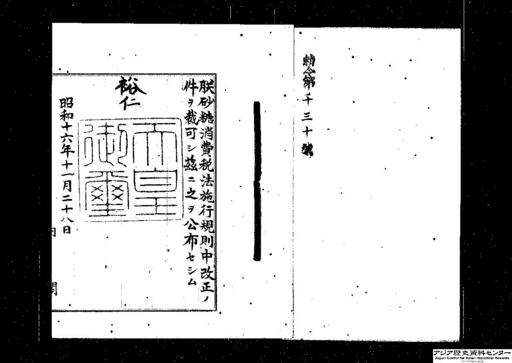 勅令第千三十號
朕砂糖消費税法施行規則中改正ノ
件ヲ裁可シ茲ニ之ヲ公布セシム
裕仁
天皇
御璽
昭和十六年十一月二十八日
内閣
アジア歴史資料センター
Japan Center for Asian Historical Records